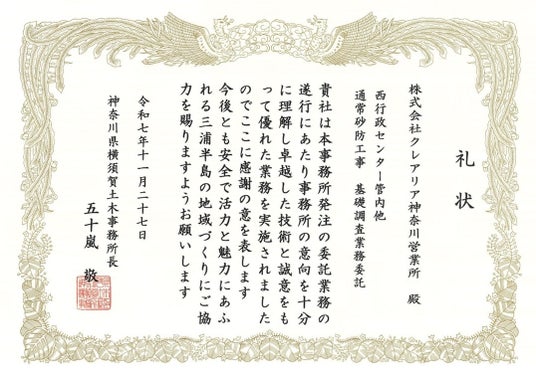 礼状
株式会社クレアリア神奈川営業所 殿
西行政センター管内他
通常砂防工事 基礎調査業務委託
貴社は本事務所発注の委託業務の
遂行にあたり事務所の意向を十分
に理解し卓越した技術と誠意をも
って優れた業務を実施されました
のでここに感謝の意を表します
今後とも安全で活力と魅力にあふ
れる三浦半島の地域づくりにご協
力を賜りますようお願いします
令和七年十一月二十七日
神奈川県横須賀土木事務所長
五十嵐 敬